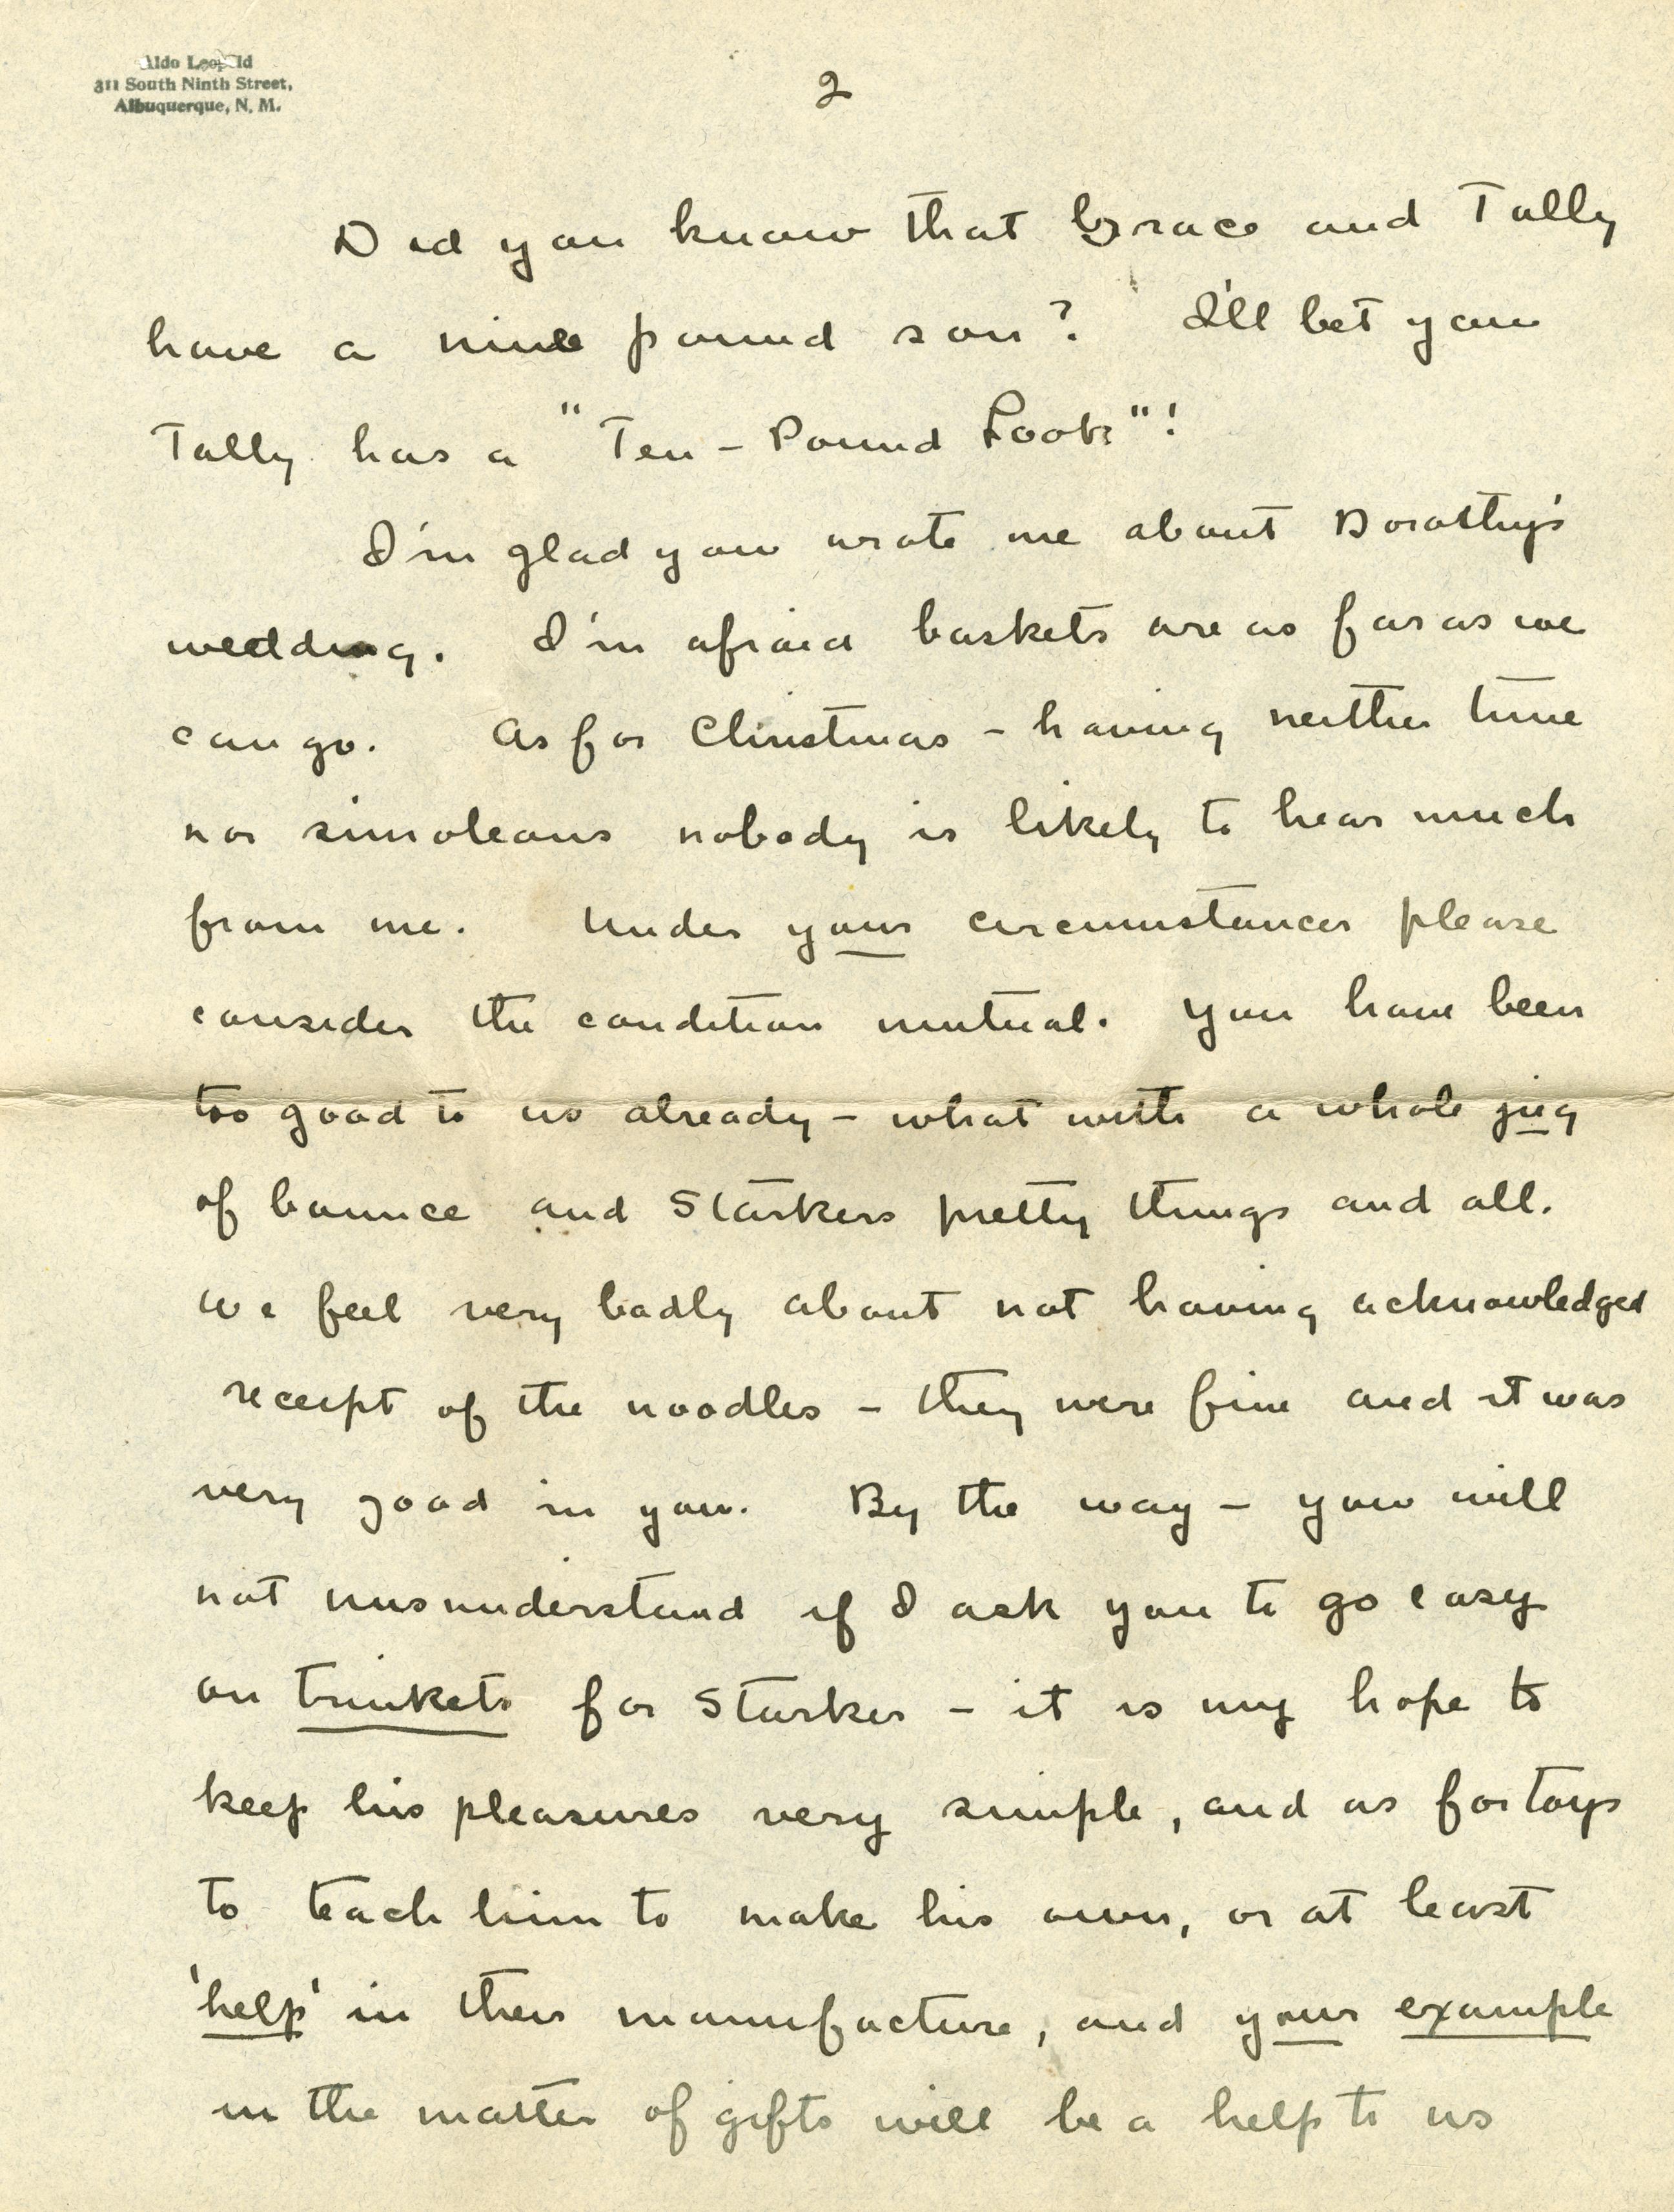 Aldo Leopold
311 South Ninth Street,
Albuquerque, N. M.
2
Did you know that Grace and Tally
have a nine pound son? I'll bet you
Tally has a "Ten-Pound Look"!
I'm glad you wrote me about Dorothy's
wedding. I'm afraid baskets are as far as we
can go. As for Christmas - having neither time
nor simoleans nobody is likely to hear much
from me. Under your circumstances please
consider the condition mutual. You have been
too good to us already - what with a whole jug
of bounce and Starkers pretty things and all.
We feel very badly about not having acknowledged
receipt of the noodles - they were fine and it was
very good in you. By the way - you will
not misunderstand if I ask you to go easy
on trinkets for Starker - it is my hope to
keep his pleasures very simple, and as for toys
to teach him to make his own, or at least
'help' in their manufacture, and your example
in the matter of gifts will be a help to us